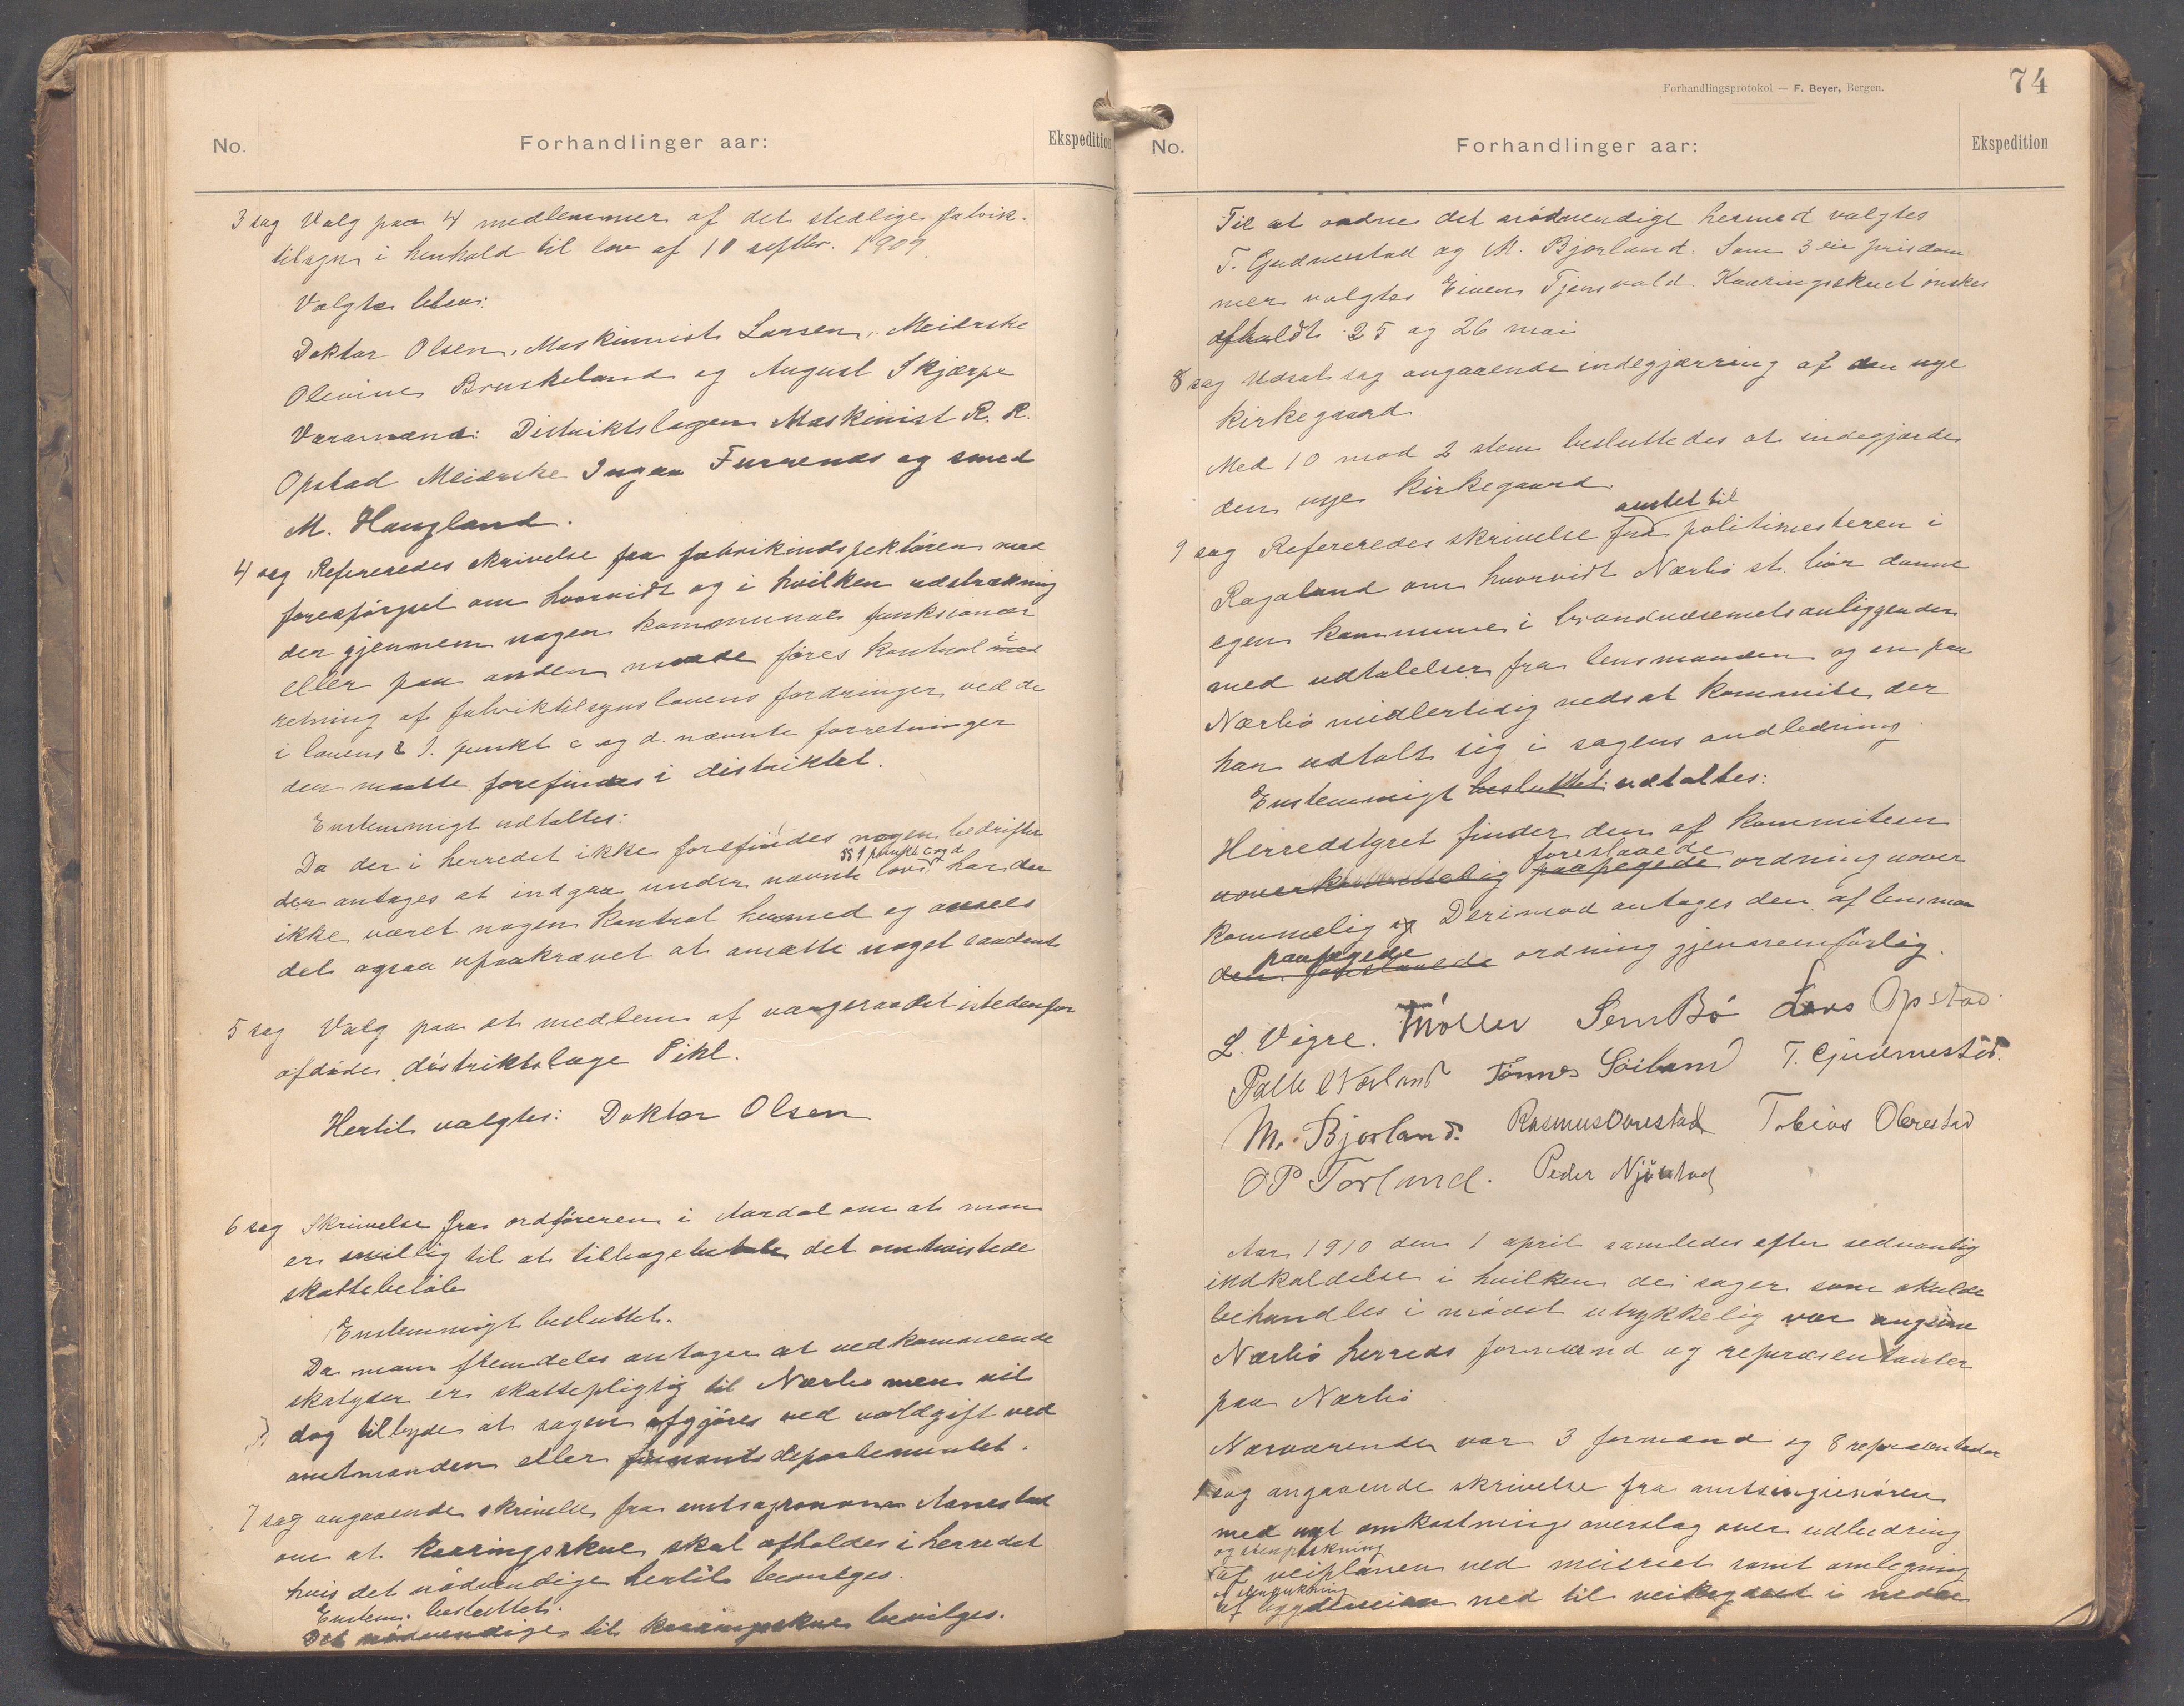 No.
Forhandlinger aar:
Ekspedition
3 sag Valg paa 4 medlemmer af det stedlige fabrik-
tilsyn i henhold til lov af 10 septbr. 1909.
Valgte blev:
Doktor Olsen, Maskinist Larsen, Meierske
Olevine Bruskeland og August Skjærpe
Varamænd: Distriktslægen Maskinist R. R.
Opstad Meierske Inga Furrenæs og smed
M. Haugland.
4 sag Refereredes skrivelse fra fabrikindspektøren med
forespørgsel om hvorvidt og i hvilken udstrækning
der gjennem nogen kommunal funksionær
eller paa anden maade føres kontrol med
retning af fabriktilsynslovens fordringer ved de
i lovens § 1. punkt c og d. nævnte forretninger
der maatte forefindes i distriktet.
Enstemmigt udtaltes:
Da der i herredet ikke forefindes nogen bedrifter
§§ 1 punkt c og d
der antages at indgaa under nævnte lov har der
ikke været nogen kontrol hermed og ansees
det ogsaa upaakrævet at ansætte noget saadant
5 sag Valg paa et medlem af vergeraadet istedenfor
afdøde distriktslæge Pihl.
Hertil valgtes: Doktor Olsen
6 sag Skrivelse fra ordføreren i Aardal om at man
er uvillig til at tilbagebetale det omtvistede
skattebeløb
Enstemmigt besluttet.
Da man fremdeles antager at vedkommende
skatyder er skattepligtig til Nærbø men vil
dog tilbyde at sagen afgjøres ved voldgift ved
amtmanden eller finantsdepartementet.
7 sag angaaende skrivelse fra amtsagronom Aanestad
om at kaaringsskue skal afholdes i herredet
hvis det nødvendige hertil bevilges.
Enstem. besluttet:
Det nødvendige til kaaringsskue bevilges.
Forhandlingsprotokol — F. Beyer, Bergen.
74
No.
Forhandlinger aar:
Ekspedition
Til at ordne det nødvendige hermed valgtes
T. Gudmestad og M. Bjorland. Som 3die prisdom
mer valgtes Eiven Tjensvold. Kaaringskuet ønskes
afholdt 25 og 26 mai
8 sag Udsat sag angaaende indegjærring af den nye
kirkegaard.
Med 10 mod 2 stem besluttedes at indegjærde
den nye kirkegaard.
amtet til
9 sag Refereredes skrivelse fra politimesteren i
Rogaland om hvorvidt Nærbø st. bør danne
egen kommune i brandvæsenets anliggender
med udtalelser fra lensmanden og en paa
Nærbø midlertidig nedsat kommite, der
har udtalt sig i sagens andledning.
Enstemmigt besluttet: udtaltes:
Herredstyret finder den af kommiteen
foreslaaede
uoverkommelig paapegede ordning uover
kommelig og Derimod antages den af lensman
paapegede
den foreslaaede ordning gjennemførlig.
L. Vigre. Møller Sem Bø Lars Opstad
Palle Nærland Tønnes Søiland T. Gudmestad.
M. Bjorland. Rasmus Obrestad Tobias Obrestad
O P Torland. Peder Njølstad
Aar 1910 den 1 april samledes efter sedvanlig
indkaldelse i hvilken de sager som skulde
behandles i mødet utrykkelig var angivne
Nærbø herreds formænd og repræsentanter
paa Nærbø
Nærværende var 3 formænd og 8 repræsentanter
1 sag angaaende skrivelse fra amtsingieniøren
med nyt omkostnings overslag over udbedring
og stenpukning
af veiplanen ved meieriet samt omlegning
og stenpukning
af bygdeveien ned til veikrydset i nedre